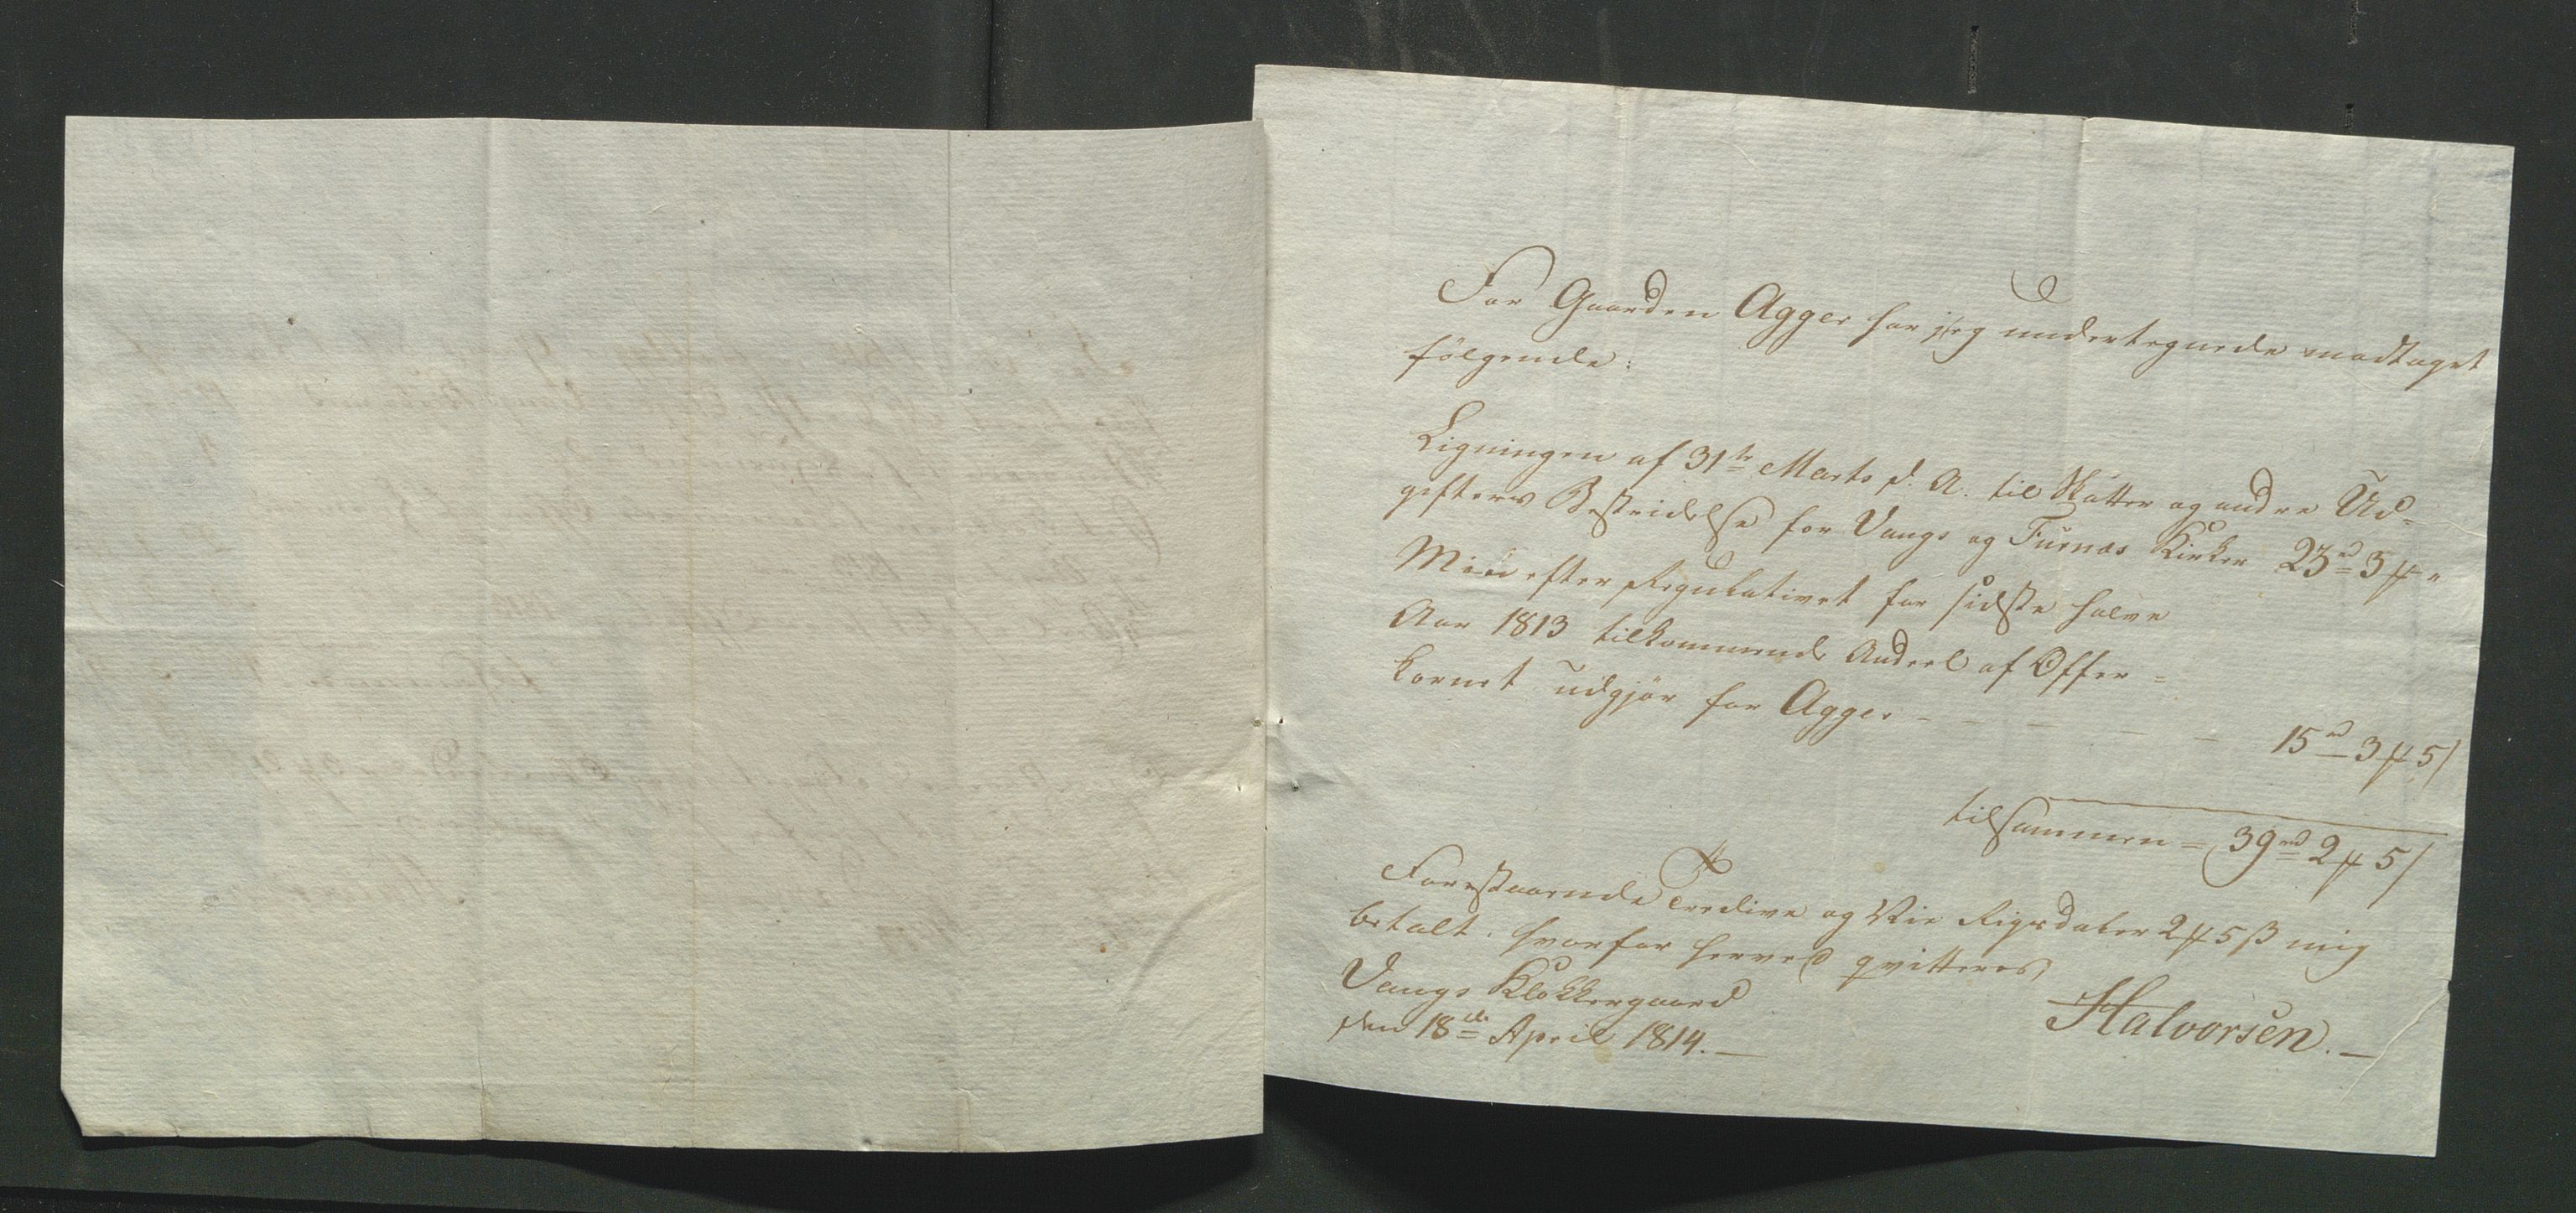 For Gaarden Agger har jeg undertegnede modtaget
følgende:
Ligningen af 31te Marts d. A. til Skatter og andre Ud-
gifters Bestridelse for Vangs og Furnæs Kirker 23rd 3 ℔ "
Min efter Regulativet for sidste halve
Aar 1813 tilkommende Andeel af Offer-
kornet udgjør for Agger - - - - - - 15rd 3 ℔ 5 /
tilsammen = 39rd 2 ℔ 5 /
Forestaaende Tredive og Nie Rigsdaler 2 ℔ 5 β mig
betalt, hvorfor herved qvitteres
Vangs Klokkergaard
den 18de April 1814. —
Halvorsen. —